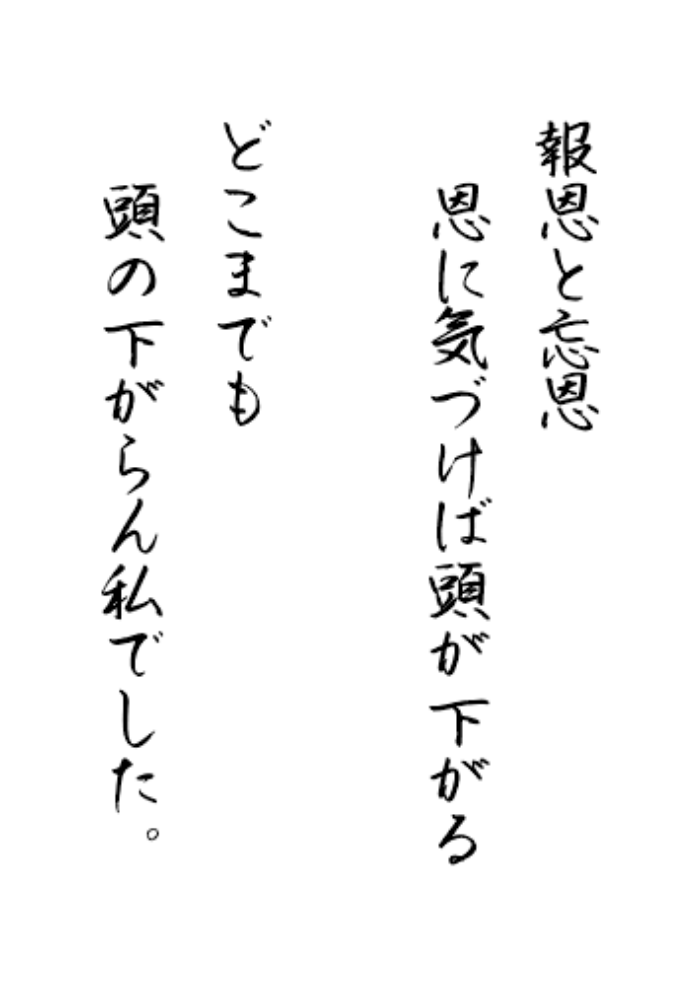 報恩と忘恩
恩に気づけば頭が下がる
どこまでも
頭の下がらん私でした。